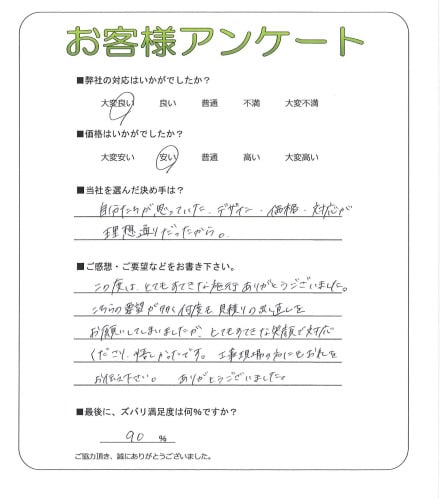 お客様アンケート
■弊社の対応はいかがでしたか？
大変良い 良い 普通 不満 大変不満
■価格はいかがでしたか？
大変安い 安い 普通 高い 大変高い
■当社を選んだ決め手は？
自分たちが思っていた、デザイン・価格・対応が
理想通りだったから。
■ご感想・ご要望などをお書き下さい。
この度は、とてもすてきな施行ありがとうございました。
こちらの要望が多く何度も見積りの出し直しを
お願いしてしまいましたが、とてもすてきな笑顔で対応
くださり、嬉しかったです。工事現場の方にもお礼を
お伝え下さい。 ありがとうございました。
■最後に、ズバリ満足度は何％ですか？
90 ％
ご協力頂き、誠にありがとうございました。